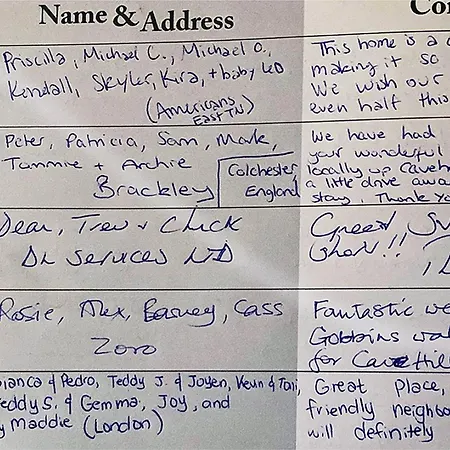 Name & Address
Co
Priscilla, Michael C., Michael O.,
Kendall, Skyler, Kira, + baby
(Americans
East TN)
This home is a
making it so
We wish our
even half this
Peter, Patricia, Sam, Mark,
Tammie + Archie
Brackley
Colchester,
England
We have had
your wonderful
locally up
a little drive awa
stay. Thank Yo
Dean, Trev + Chick
Services
Great
Rosie, Alex, Barney, Cass
Zoro
Fantastic we
Gobbins wal
for Cave Hill
ianca & Pedro, Teddy J. & Joyen, Keun & Tori,
eddy S. & Gemma, Joy, and
y Maddie (London)
Great Place,
friendly neighbo
will definitely